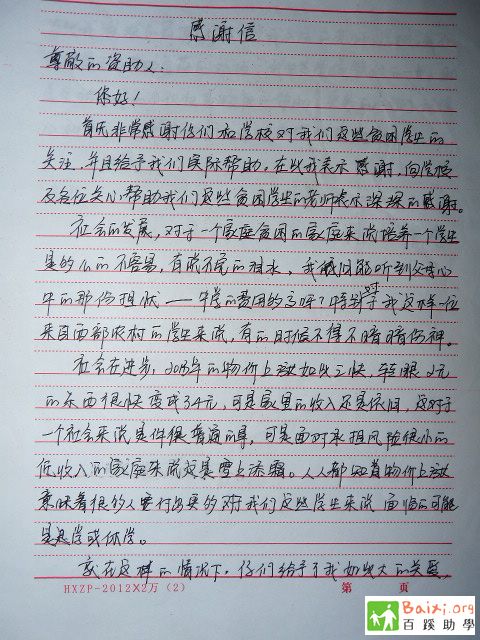 感谢信
尊敬的资助人:
您好!
首先非常感谢你们和学校对我们这些贫困学生的
关注,并且给予我们实际帮助,在此我表示感谢,向学校
及各位关心帮助我们这些贫困学生的老师表示深深的感谢。
社会的发展,对于一个家庭贫困的家庭来说培养一个学生
是的不容易,有说不完的泪水,我能听到父母心
中的那份担忧——学的费用的高呀?对于我这样一位
来自西部农村的学生来说,有的时候不得不暗暗伤神。
社会在进步,的物价上涨如此之快,转眼2元
的东西很快变成3、4元,可是家里的收入还是依旧,这对于
一个社会来说是件很普遍的事,可是面对承担风险很小的
低收入的家庭来说这是雪上添霜。人人都知道物价上涨
意味着很的人要付出更的对我们这些学生来说面临的可能
是退学或休学。
就在这样的情况下,你们给予了我如此大的关爱,
HXZP-2012×2万(2)
第 页
Baixi.org
百蹊助學